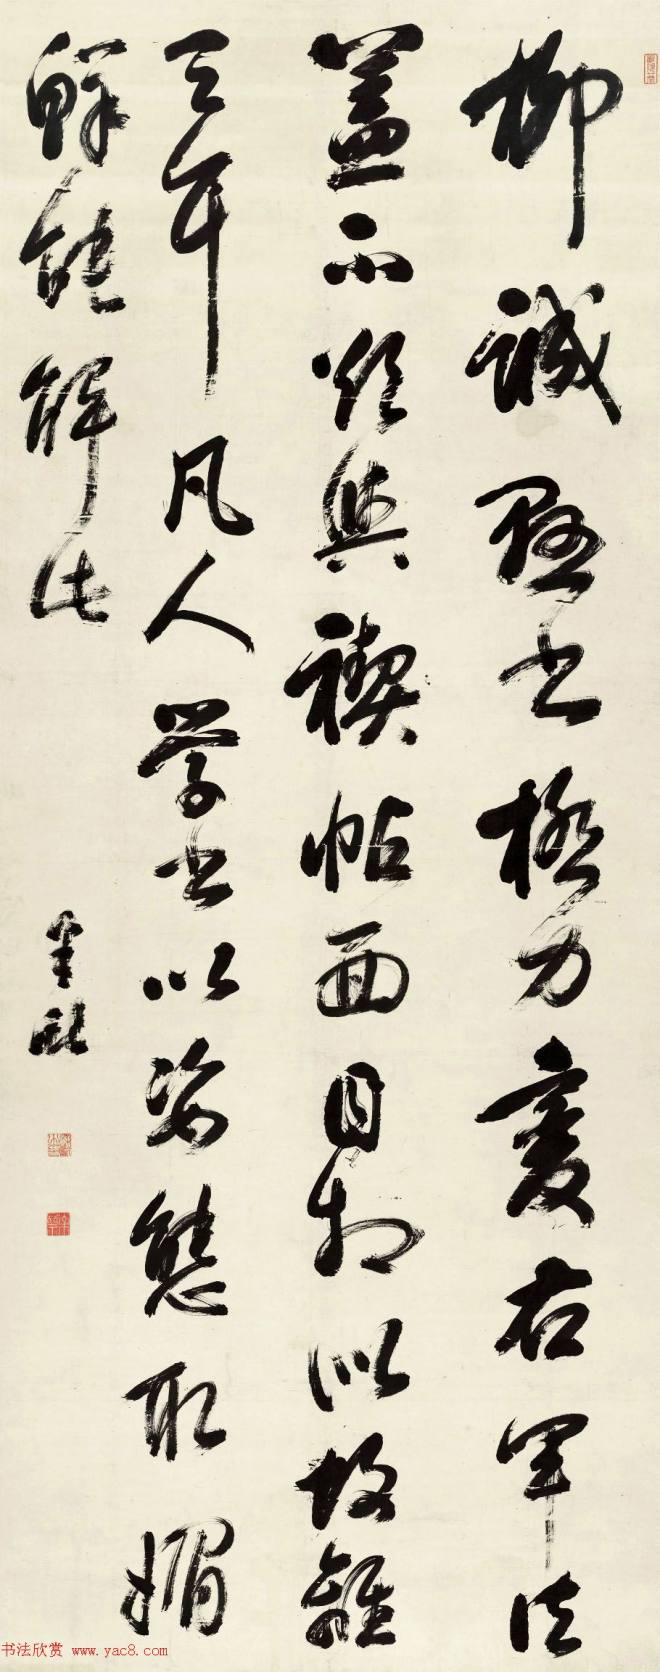 柳誠懸書極力變右軍法
蓋不欲與禊帖面目相似故離
之耳凡人學書以姿態取媚
鮮能解此
笪重光
书法欣赏 www.yac8.com